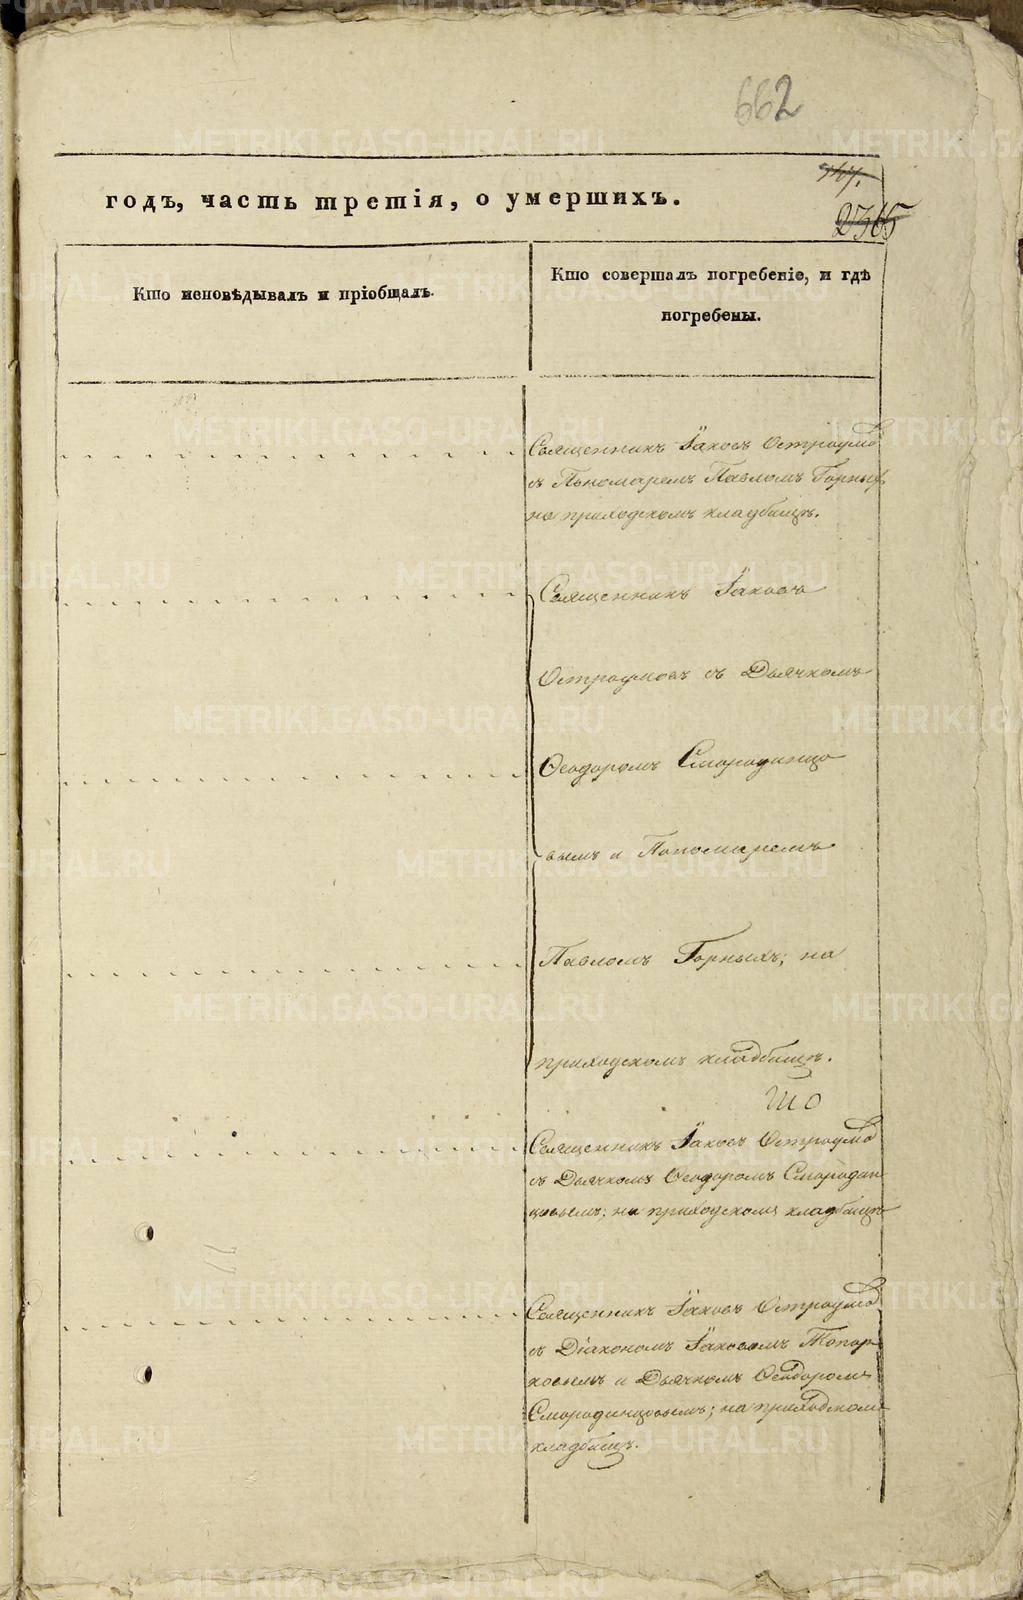 662
годъ, часть третія, о умершихъ.
2365
Кто исповѣдывалъ и пріобщалъ.
Кто совершалъ погребеніе, и гдѣ
погребены.
Священникъ Іаковъ Остроумо
съ Пономаремъ Павломъ Горныхъ
на приходскомъ кладбищѣ.
Священникъ Іаковъ
Остроумовъ съ Дьячкомъ
Ѳеодоромъ Смородинцо
вымъ и Пономаремъ
Павломъ Горныхъ; на
приходскомъ кладбищѣ.
Священникъ Іаковъ Остроумо
съ Дьячкомъ Ѳеодоромъ Смородин
цовымъ; на приходскомъ кладбищѣ
Священникъ Іаковъ Остроумо
съ Діакономъ Іаковомъ Топор
ковымъ и Дьячкомъ Ѳеодоромъ
Смородинцовымъ; на приходском
кладбищѣ.
METRIKI.GASO-URAL.RU